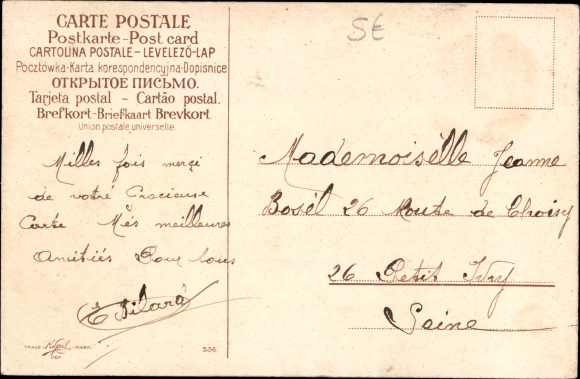 CARTE POSTALE
Postkarte-Post card
CARTOLINA POSTALE-LEVELEZŐ-LAP
Pocztówka-Karta korespondencyjna-Dopisnice
ОТКРЫТОЕ ПИСЬМО.
Tarjeta postal - Cartão postal.
Brefkort-Briefkaart Brevkort
Union postale universelle.
5€
Milles fois merçi
de votre Gracieuse
Carte Mes meilleures
Amitiés Pour tous
E Pilard
Mademoiselle Jeanne
Bosél 26 Route de Choisy
26 Petit Ivry
Seine
TRADE MARK.
DEP.
536.